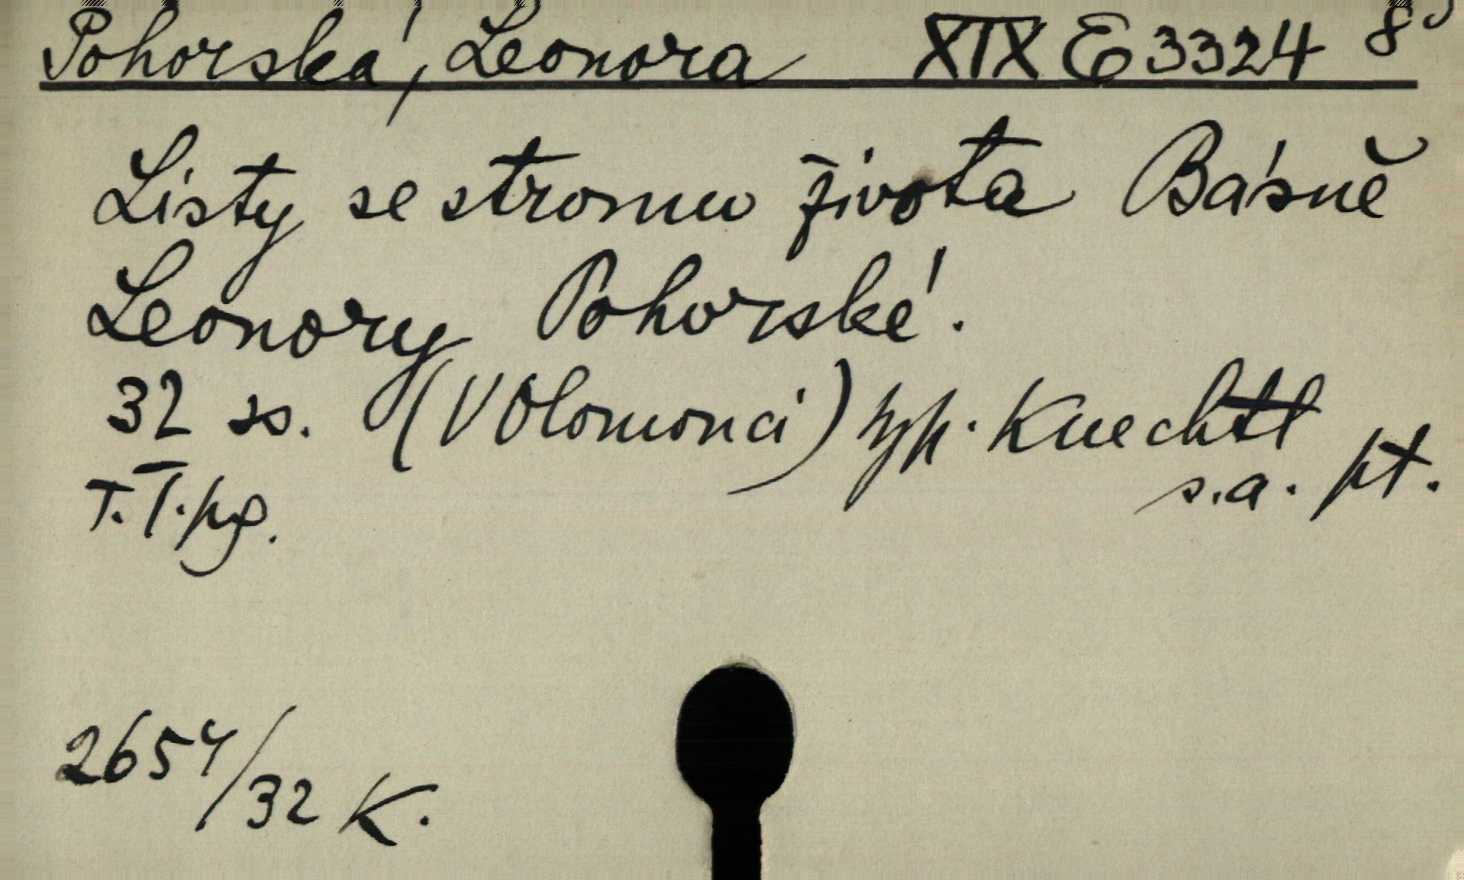 Pohorská, Leonora XIX E 3324 8°
Listy se stromu života Básně
Leonory Pohorské.
32 ss. (V Olomouci) typ. Knechtl
s.a. pt.
T.T.pg.
2654/32 K.